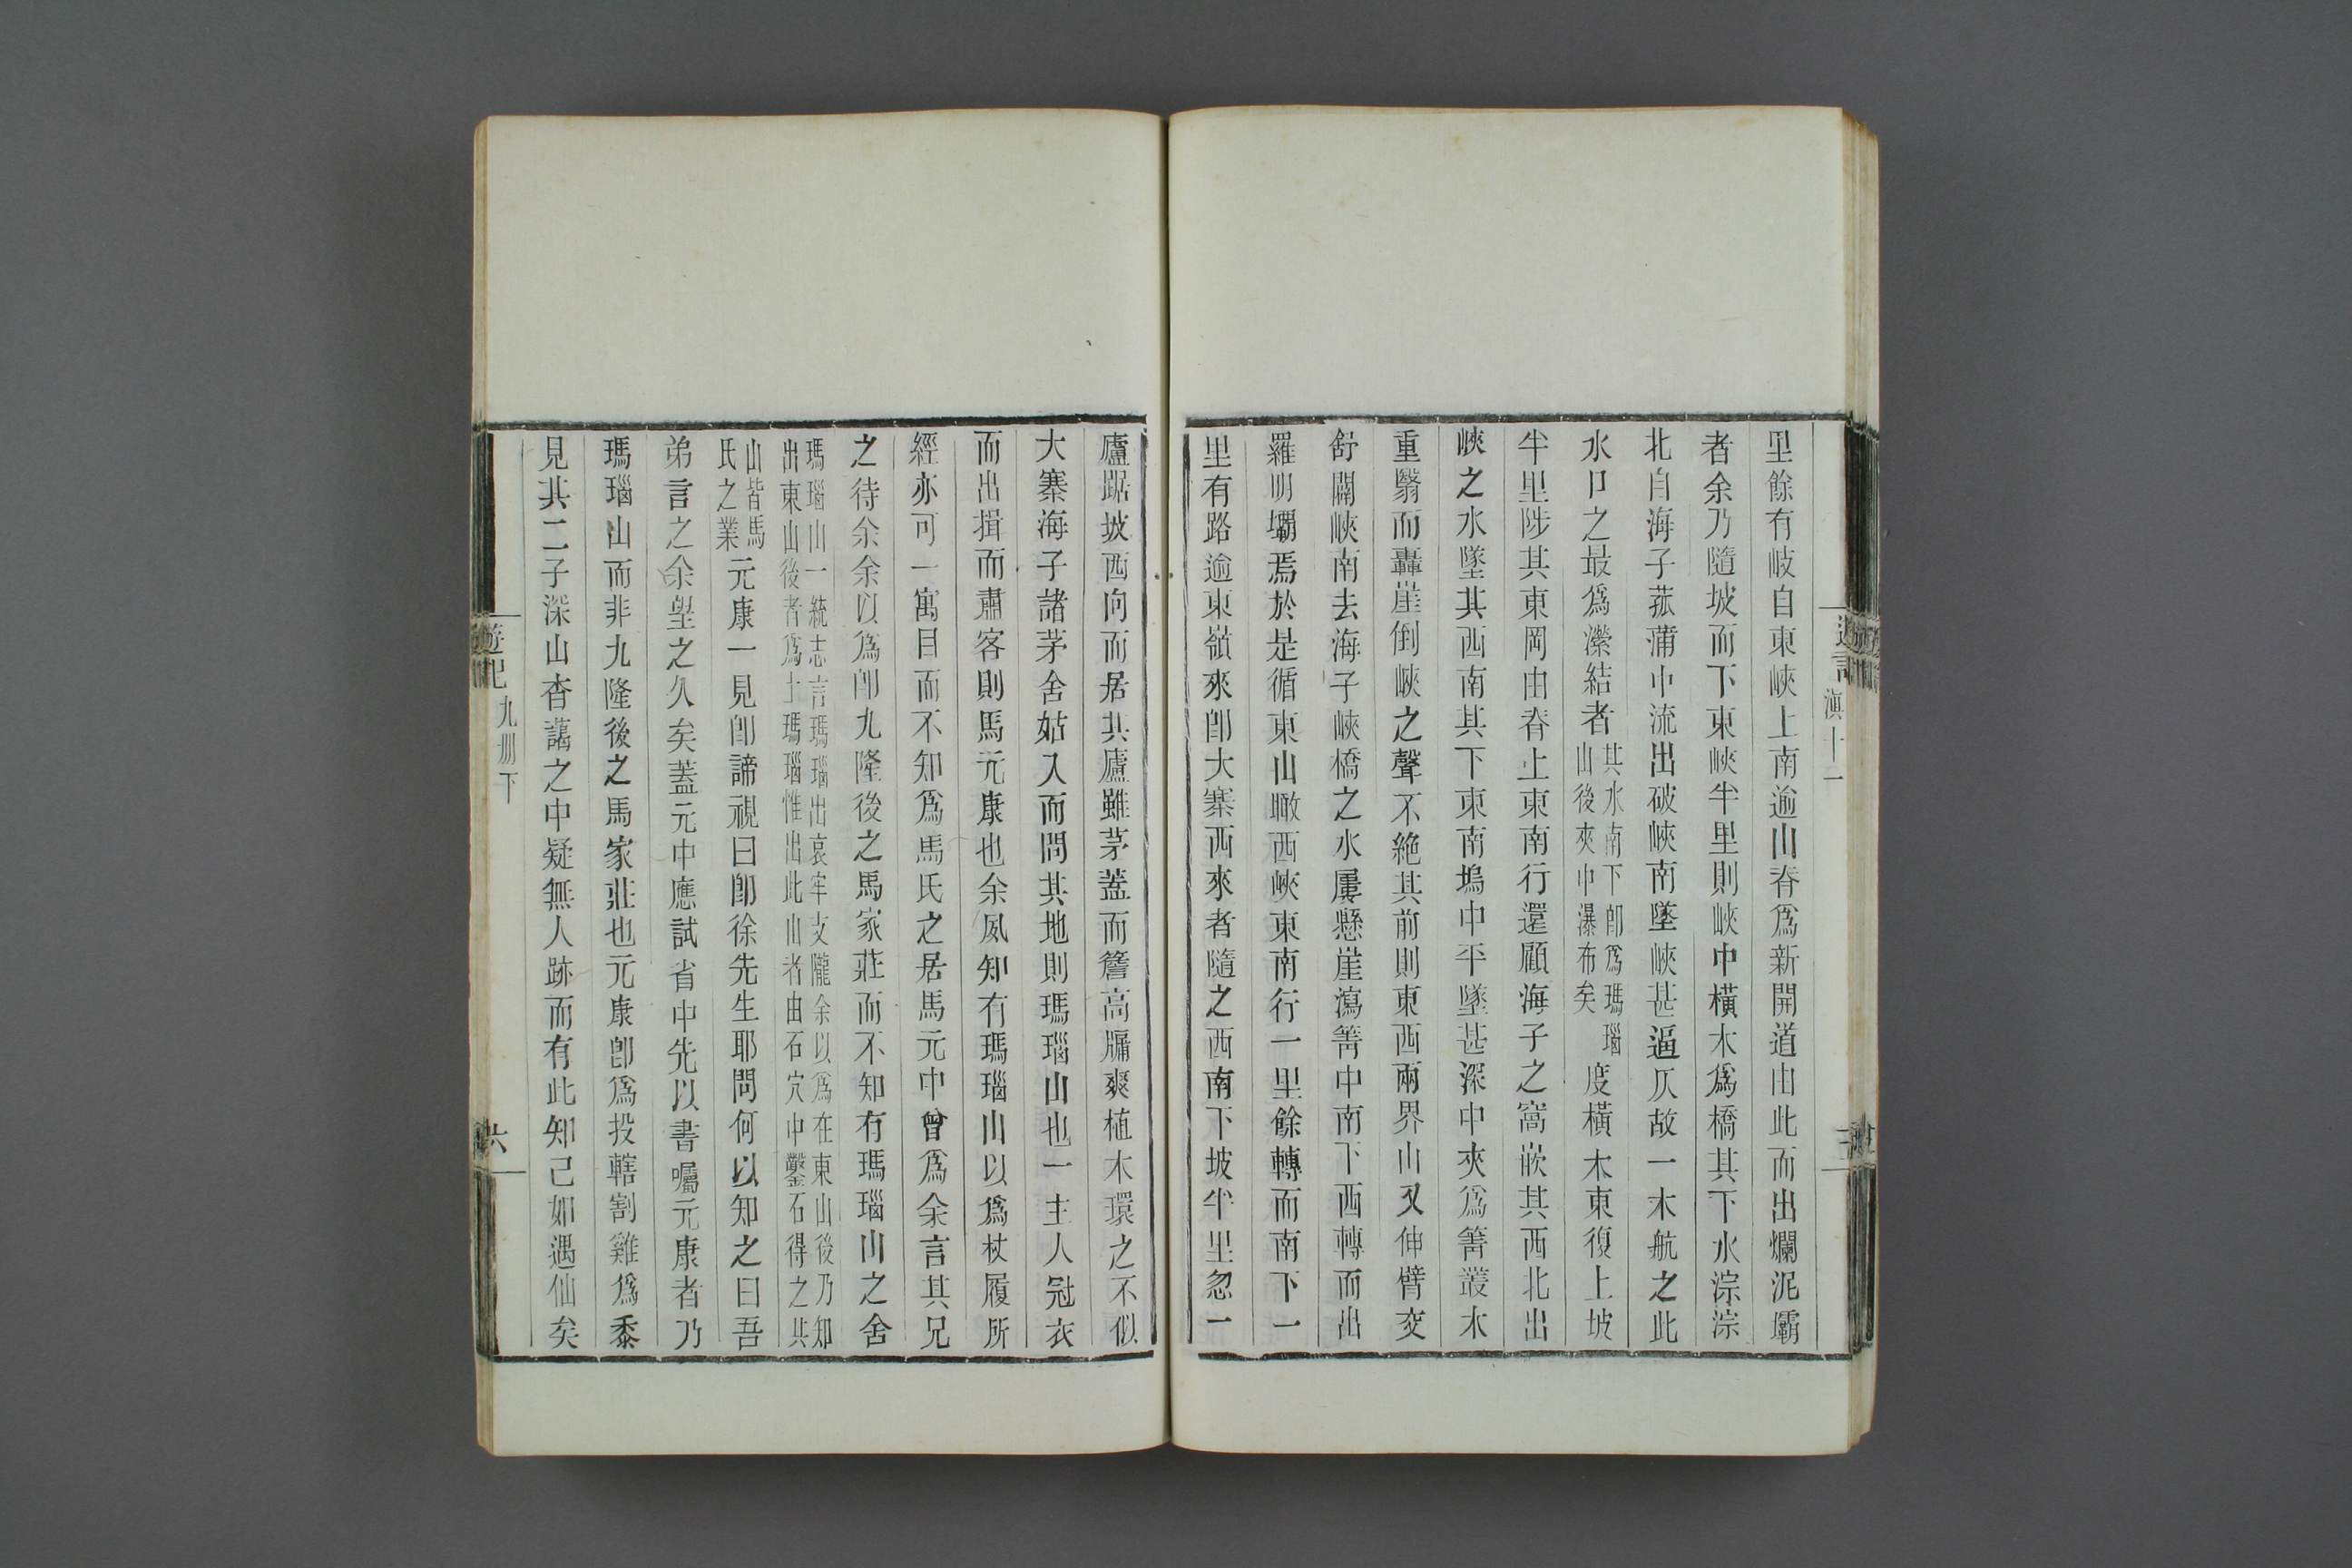 遊記 滇十一
里餘有岐自東峽上南逾山脊爲新開道由此而出爛泥壩
者余乃隨坡而下東峽半里則峽中橫木爲橋其下水淙淙
北自海子菰蒲中流出破峽南墜峽甚逼仄故一木航之此
水口之最爲瀠結者其水南下卽爲瑪瑙山後夾中瀑布矣度橫木東復上坡
半里陟其東岡由脊上東南行還顧海子之窩嵌其西北出
峽之水墜其西南其下東南塢中平墜甚深中夾爲箐叢木
重翳而轟崖倒峽之聲不絶其前則東西兩界山又伸臂交
舒闢峽南去海子峽橋之水屢懸崖瀉箐中南下西轉而出
羅明壩焉於是循東山瞰西峽東南行一里餘轉而南下一
里有路逾東嶺來卽大寨西來者隨之西南下坡半里忽一
廬踞坡西向而居其廬雖茅蓋而簷高牖爽植木環之不似
大寨海子諸茅舍姑入而問其地則瑪瑙山也一主人冠衣
而出揖而肅客則馬元康也余夙知有瑪瑙山以爲杖履所
經亦可一寓目而不知爲馬氏之居馬元中曾爲余言其兄
之待余余以爲卽九隆後之馬家莊而不知有瑪瑙山之舍
瑪瑙山一統志言瑪瑙出哀牢支隴余以爲在東山後乃知
出東山後者爲土瑪瑙惟出此山者由石穴中鑿石得之其
山皆馬氏之業元康一見卽諦視曰卽徐先生耶問何以知之曰吾
弟言之余望之久矣蓋元中應試省中先以書囑元康者乃
瑪瑙山而非九隆後之馬家莊也元康卽爲投轄割雞爲黍
見其二子深山杳藹之中疑無人跡而有此知己如遇仙矣
遊記 九冊下
六